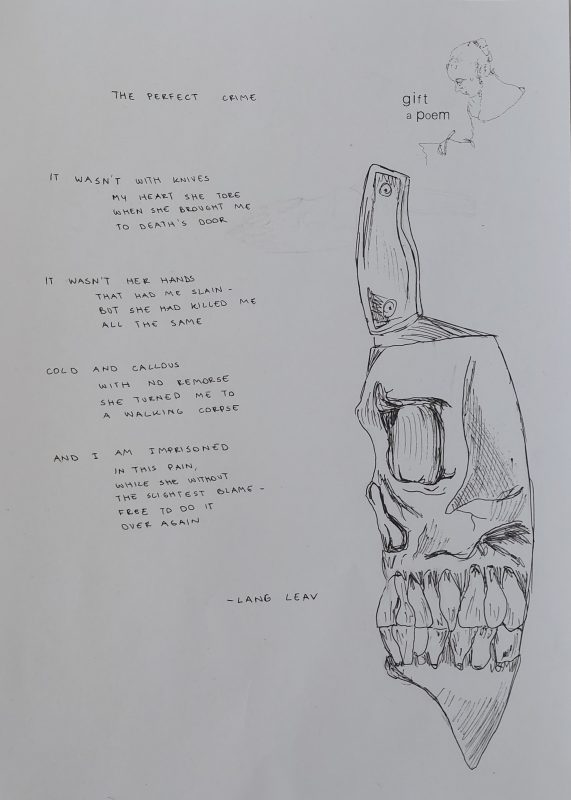 gift
a poem
THE PERFECT CRIME
IT WASN'T WITH KNIVES
MY HEART SHE TORE
WHEN SHE BROUGHT ME
TO DEATH'S DOOR
IT WASN'T HER HANDS
THAT HAD ME SLAIN -
BUT SHE HAD KILLED ME
ALL THE SAME
COLD AND CALLOUS
WITH NO REMORSE
SHE TURNED ME TO
A WALKING CORPSE
AND I AM IMPRISONED
IN THIS PAIN,
WHILE SHE WITHOUT
THE SLIGHTEST BLAME -
FREE TO DO IT
OVER AGAIN
- LANG LEAV